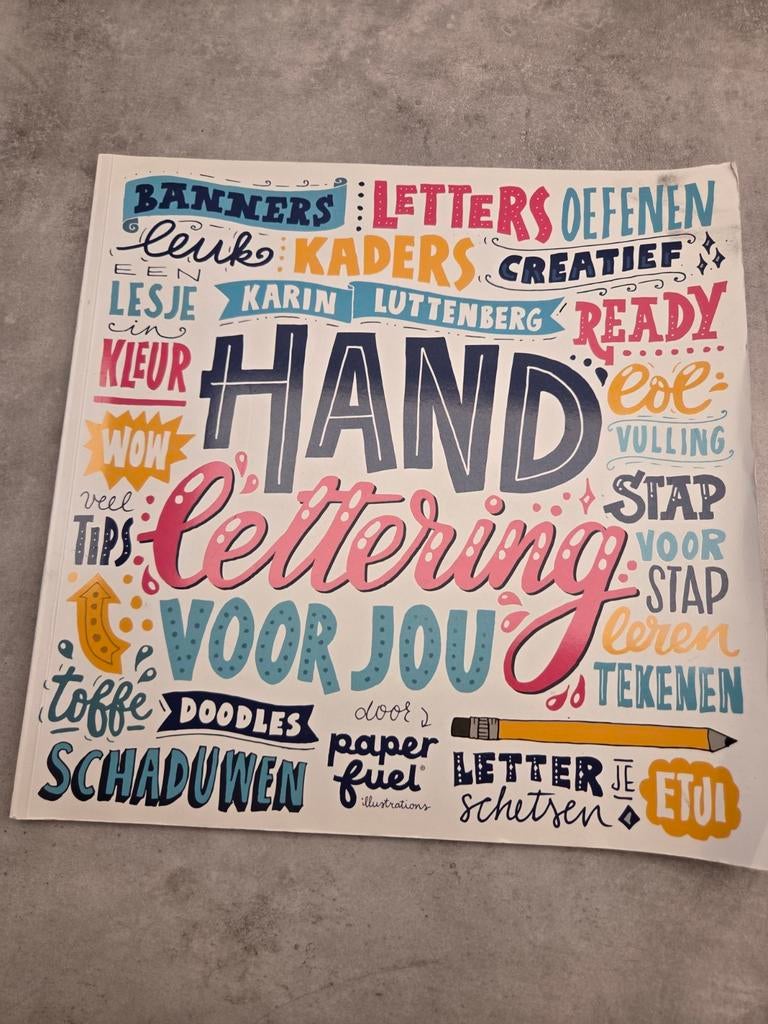 BANNERS
LETTERS OEFENEN
leuk
KADERS
CREATIEF
EEN
LESJE
in
KLEUR
KARIN LUTTENBERG
READY
HAND
lettering
VOOR JOU
WOW
veel
TIPS
eoe
VULLING
STAP
VOOR
STAP
leren
TEKENEN
toffe
DOODLES
SCHADUWEN
door
paper
fuel®
illustrations
LETTER JE
schetsen
ETUI